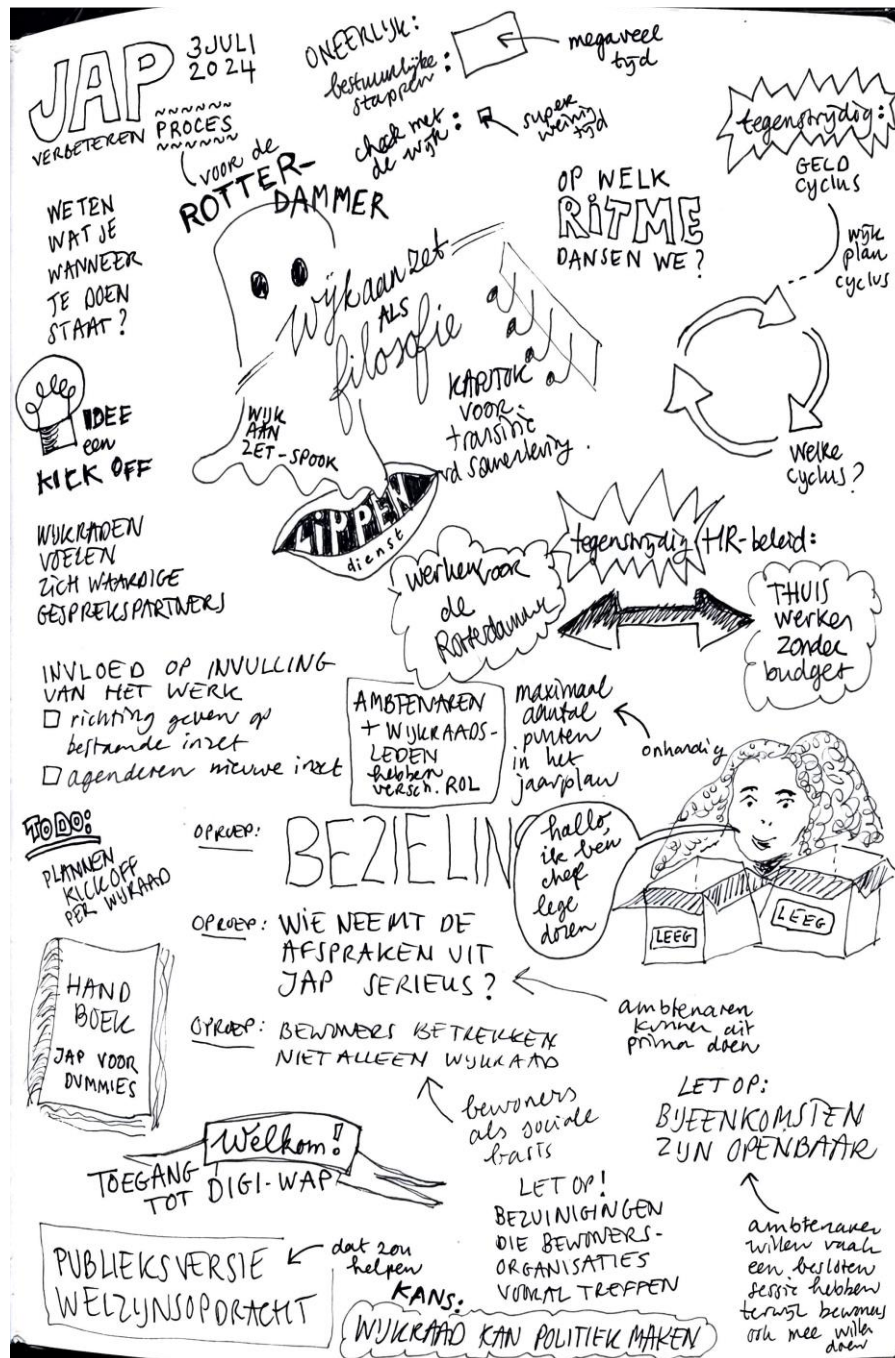 JAP
3 JULI
2024
VERBETEREN
PROCES
voor de
ROTTER-
DAMMER
ONEERLIJK:
bestuurlijke
stappen:
megaveel
tijd
check met
de wijk:
super
weinig
tijd
tegenstrijdig:
GELD
cyclus
wijk
plan
cyclus
welke
cyclus?
OP WELK
RITME
DANSEN WE?
WETEN
WAT JE
WANNEER
TE DOEN
STAAT?
Wijk aan zet
ALS
filosofie
KAPSTOK
VOOR
transitie
vd samenleving.
WIJK
AAN
ZET-SPOOK
LIPPEN
dienst
IDEE
een
KICK OFF
WIJKRADEN
VOELEN
ZICH WAARDIGE
GESPREKSPARTNERS
werken voor
de
Rotterdammer
tegenstrijdig HR-beleid:
THUIS
werken
zonder
budget
INVLOED OP INVULLING
VAN HET WERK
□ richting geven op
bestaande inzet
□ agenderen nieuwe inzet
AMBTENAREN
+ WIJKRAADS-
LEDEN
hebben
versch. ROL
maximaal
aantal
punten
in het
jaarplan
onhandig
TODO:
PLANNEN
KICKOFF
PER WIJKRAAD
OPROEP: BEZIELIN
hallo,
ik ben
chef
lege
dozen
LEEG
LEEG
OPROEP: WIE NEEMT DE
AFSPRAKEN UIT
JAP SERIEUS?
ambtenaren
kunnen dit
prima doen
HAND
BOEK
JAP VOOR
DUMMIES
OPROEP: BEWONERS BETREKKEN
NIET ALLEEN WIJKRAAD
bewoners
als sociale
basis
LET OP:
BIJEENKOMSTEN
ZIJN OPENBAAR
ambtenaren
willen vaak
een besloten
sessie hebben
terwijl bewoners
ook mee willen
doen
Welkom!
TOEGANG
TOT DIGI-WAP
LET OP!
BEZUINIGINGEN
DIE BEWONERS-
ORGANISATIES
VOORAL TREFFEN
PUBLIEKSVERSIE
WELZIJNSOPDRACHT
dat zou
helpen
KANS:
WIJKRAAD KAN POLITIEK MAKEN